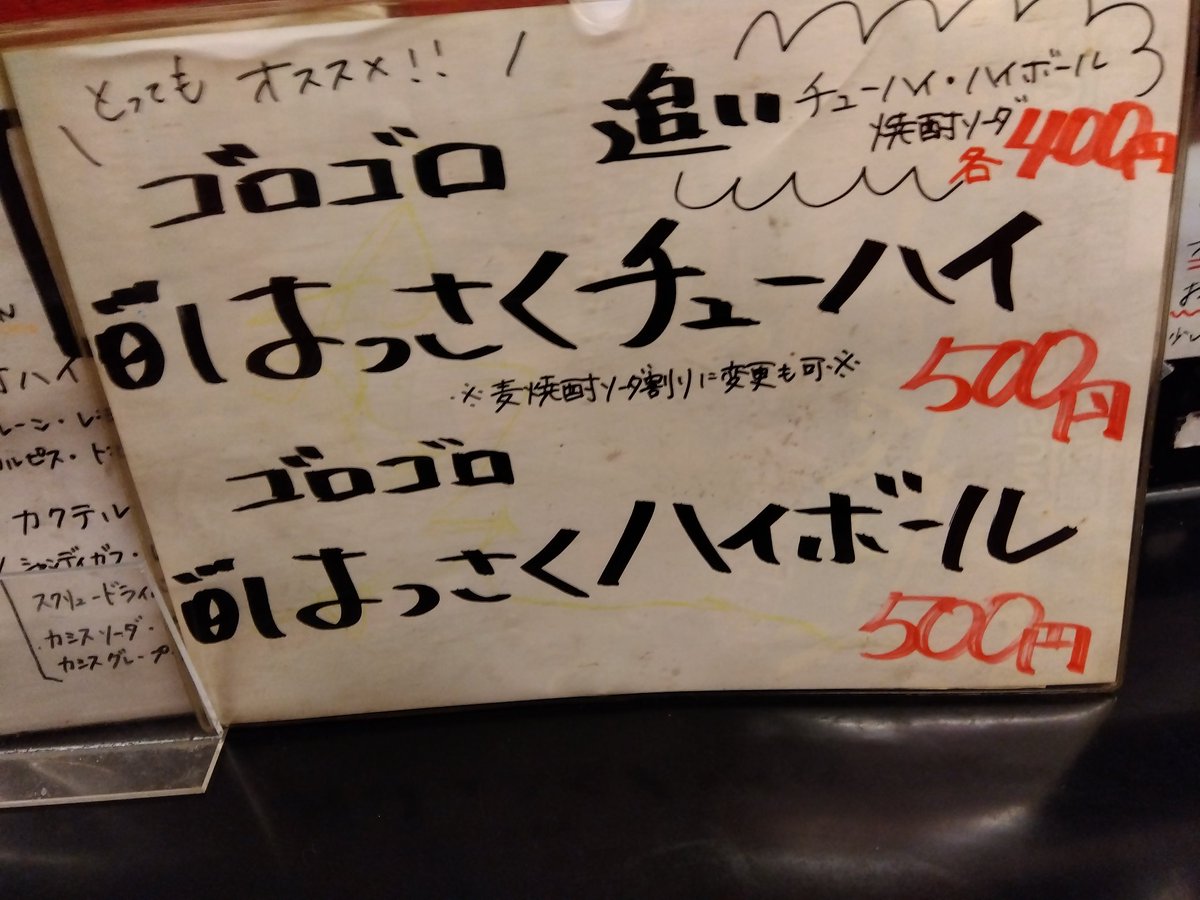 とってもオススメ!!
追い チューハイ・ハイボール
焼酎ソーダ
各400円
ゴロゴロ
はっさくチューハイ
500円
※麦焼酎ソーダ割りに変更も可※
ゴロゴロ
はっさくハイボール
500円
ハイ
レーン・レ
ルピス・
カクテル
シャンディガフ・
スクリュードライ
カシスソーダ・
カシスグレープ